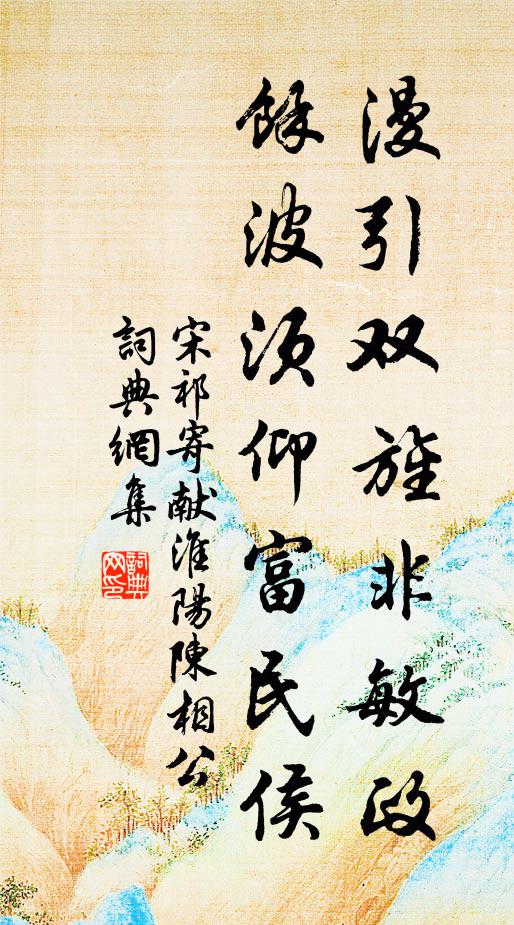 漫引双旌非敏政
馀波须仰富民侯
宋祁寄献淮陽陳相公
詞典網集
詞典網印